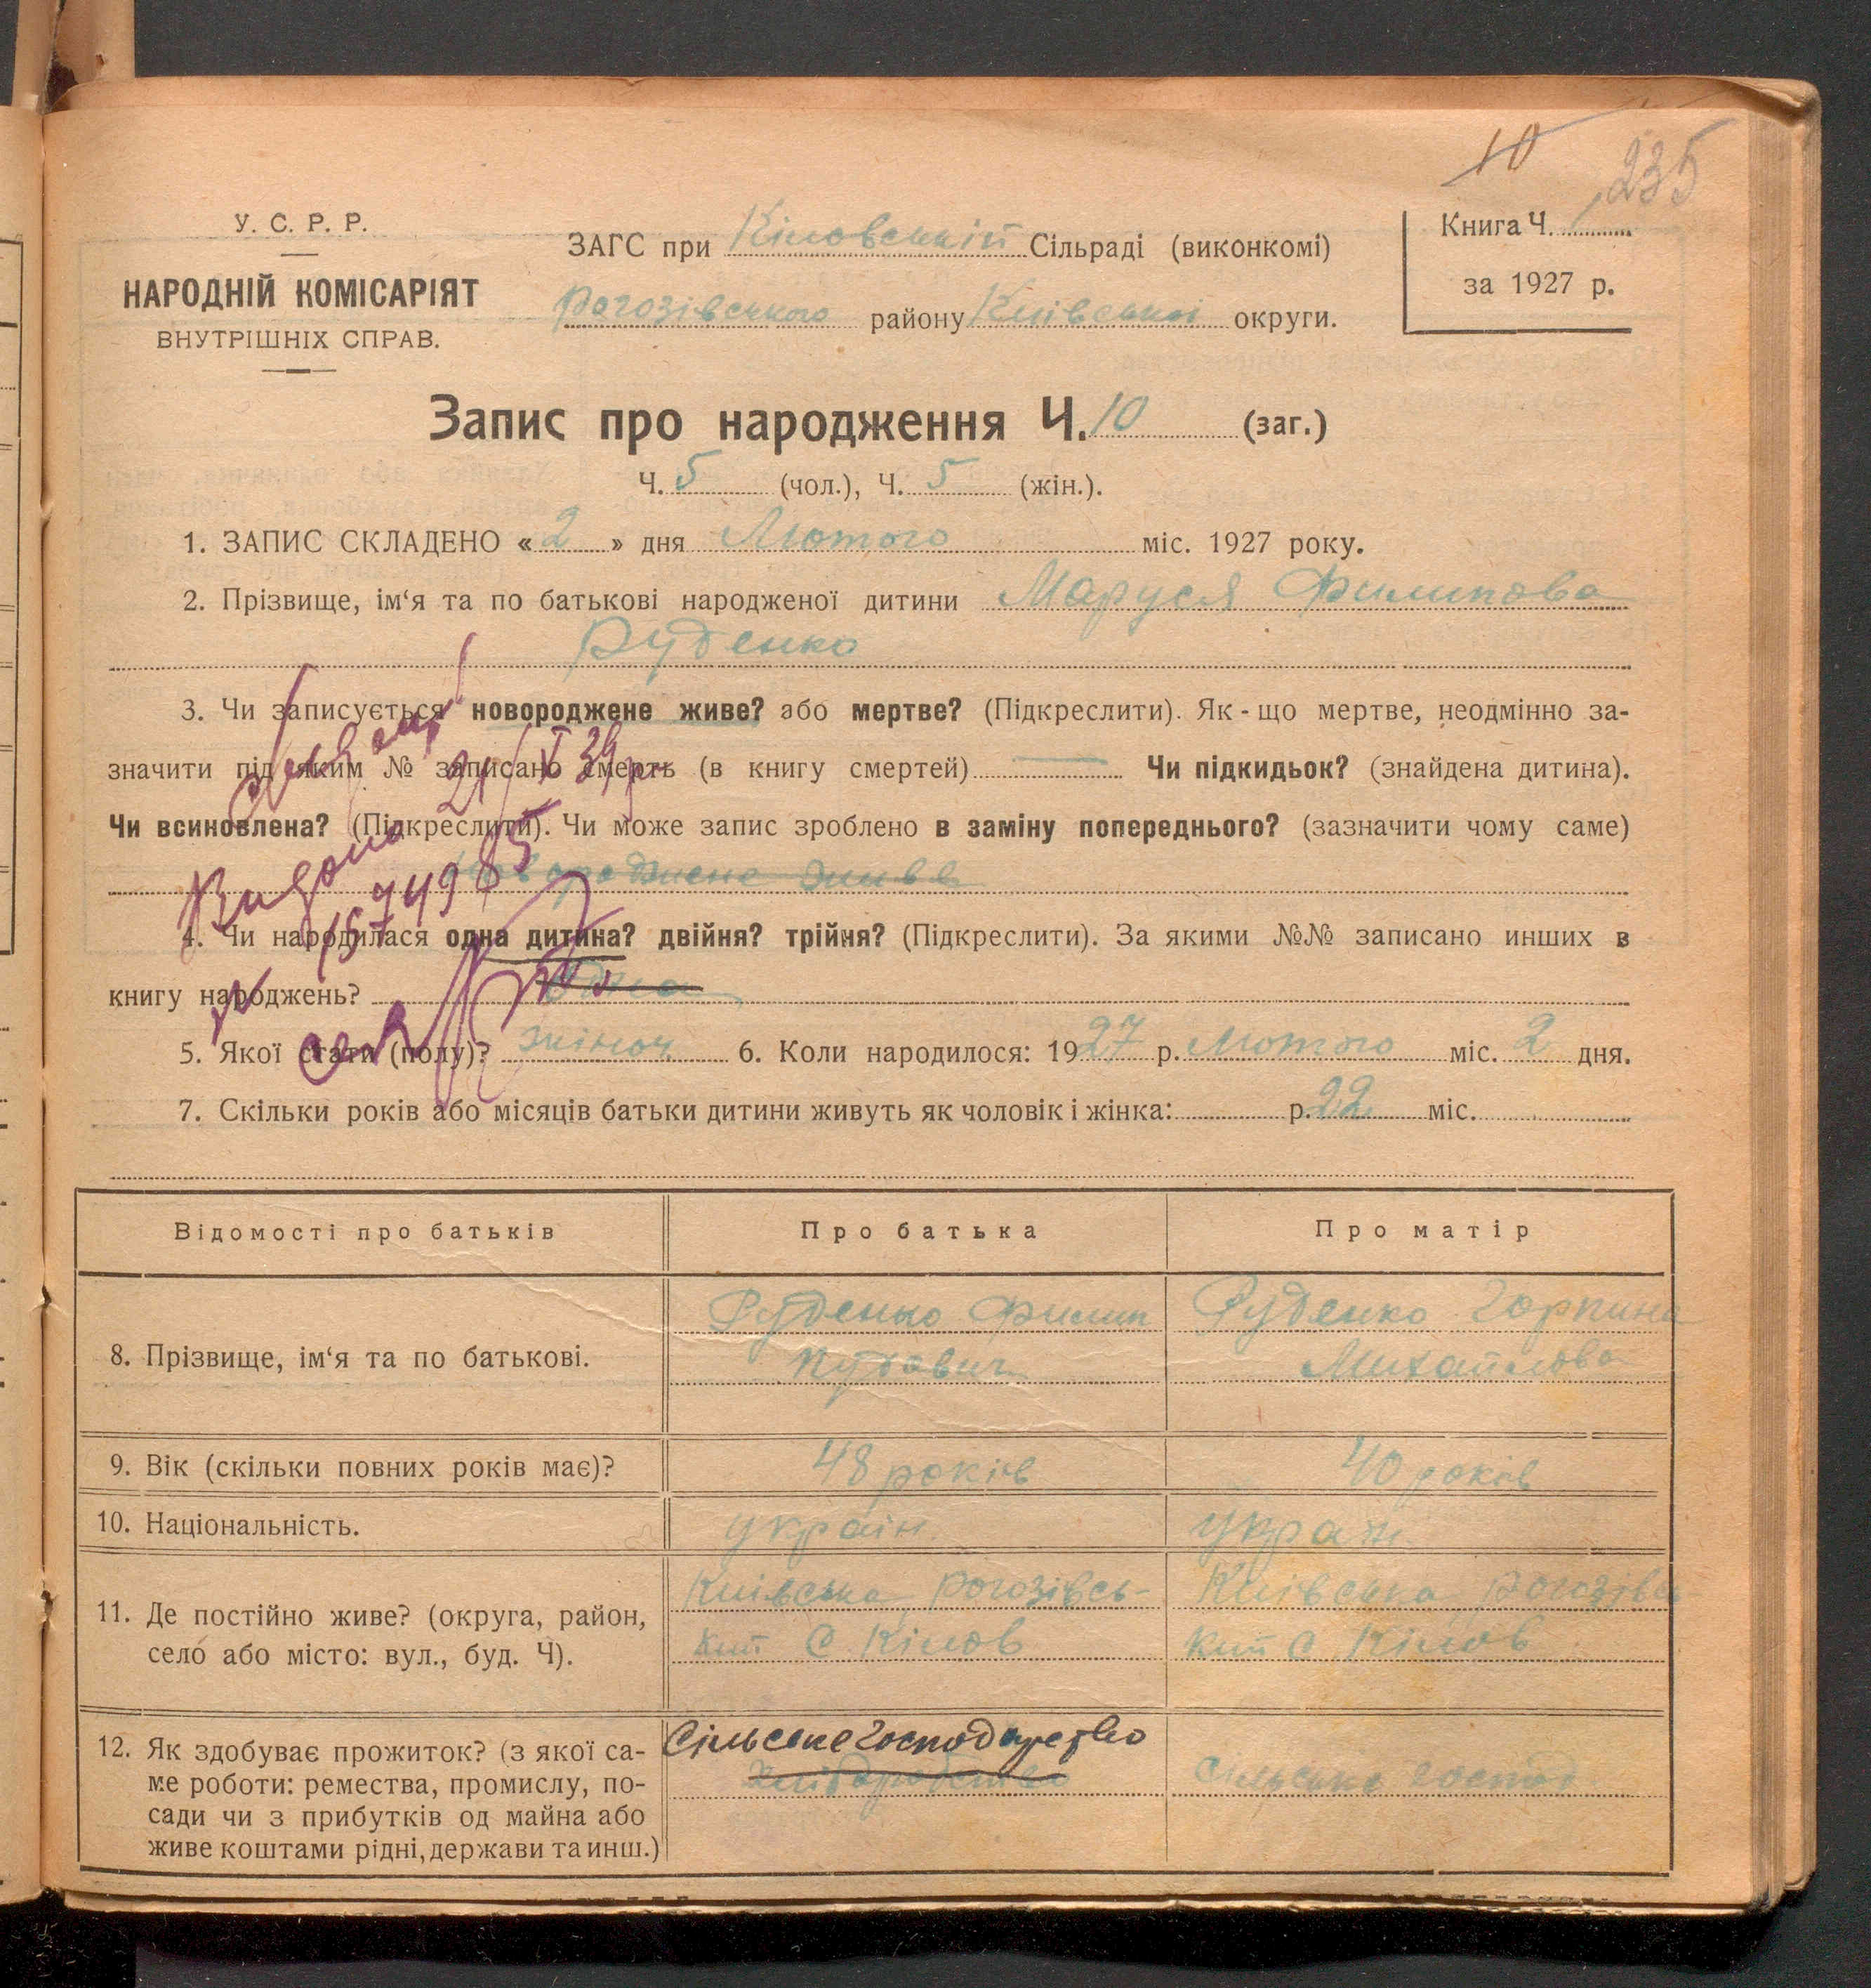 10 235
У. С. Р. Р.
НАРОДНІЙ КОМІСАРІЯТ
ВНУТРІШНІХ СПРАВ.
ЗАГС при Кіловській Сільраді (виконкомі)
Рогозівського району Київської округи.
Книга Ч.
за 1927 р.
Запис про народження Ч. 10 (заг.)
Ч. 5 (чол.), Ч. 5 (жін.).
1. ЗАПИС СКЛАДЕНО « 2 » дня Лютого міс. 1927 року.
2. Прізвище, ім‘я та по батькові народженої дитини Маруся Филипова
Руденко
3. Чи записується новороджене живе? або мертве? (Підкреслити). Як-що мертве, неодмінно за-
значити під яким № записано смерть (в книгу смертей) Чи підкидьок? (знайдена дитина).
Чи всиновлена? (Підкреслити). Чи може запис зроблено в заміну попереднього? (зазначити чому саме)
новороджене живе
4. Чи народилася одна дитина? двійня? трійня? (Підкреслити). За якими №№ записано инших в
книгу народжень? Одна
5. Якої стати (полу)? жіноч. 6. Коли народилося: 1927 р. Лютого міс. 2 дня.
7. Скільки років або місяців батьки дитини живуть як чоловік і жінка: р. 22 міс.
Відомості про батьків Про батька Про матір
8. Прізвище, ім‘я та по батькові. Руденко Филип Руденко Горпина
Михайлова
9. Вік (скільки повних років має)? 48 років 40 років
10. Національність. україн. україн.
11. Де постійно живе? (округа, район, село або місто: вул., буд. Ч).
Київська Рогозівсь- Київська Рогозівсь
кий С Кілов кий С Кілов
12. Як здобуває прожиток? (з якої са-
ме роботи: ремества, промислу, по-
сади чи з прибутків од майна або
живе коштами рідні, держави та инш.)
Сільське господарство
хліборобство Сільське господ